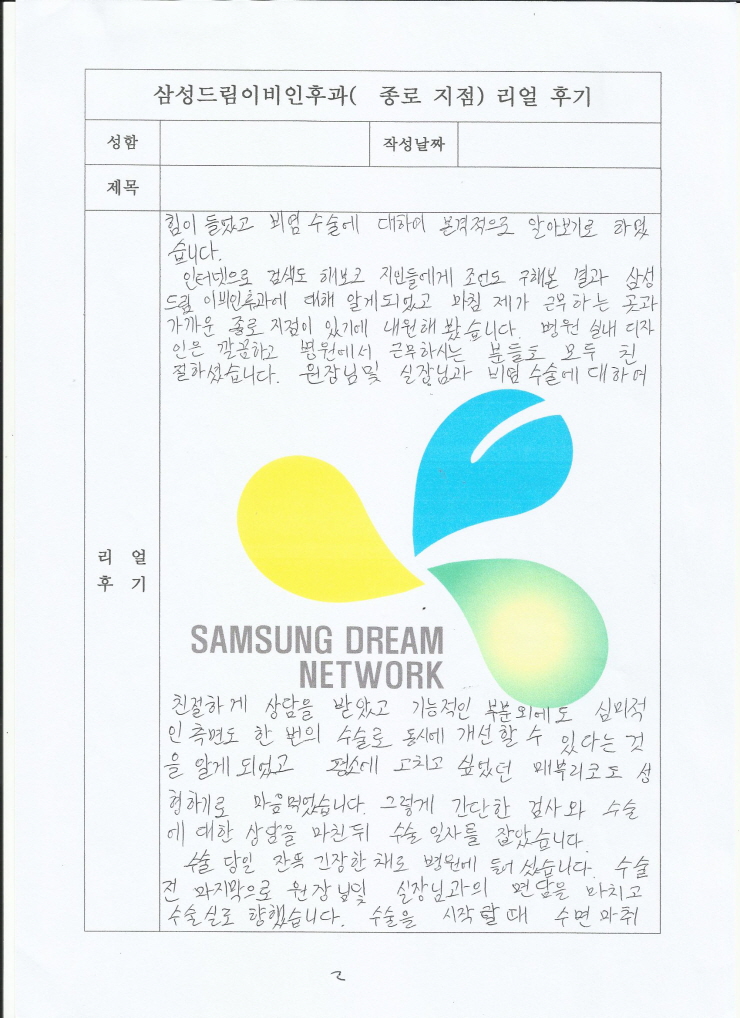 삼성드림이비인후과( 종로 지점) 리얼 후기
성함
작성날짜
제목
힘이 들었고 비염 수술에 대하여 본격적으로 알아보기로 하였
습니다.
인터넷으로 검색도 해보고 지인들에게 조언도 구해본 결과 삼성
드림 이비인후과에 대해 알게되었고 마침 제가 근무하는 곳과
가까운 종로 지점이 있기에 내원해 봤습니다. 병원 실내 디자
인은 깔끔하고 병원에서 근무하시는 분들도 모두 친
절하셨습니다. 원장님및 실장님과 비염 수술에 대하여
리 얼
후 기
SAMSUNG DREAM
NETWORK
친절하게 상담을 받았고 기능적인 부분외에도 심미적
인 측면도 한 번의 수술로 동시에 개선할 수 있다는 것
을 알게 되었고 평소에 고치고 싶었던 매부리코도 성
형하기로 마음먹었습니다. 그렇게 간단한 검사와 수술
에 대한 상담을 마친뒤 수술 일사를 잡았습니다.
수술 당일 잔뜩 긴장한 채로 병원에 들어 섰습니다. 수술
전 마지막으로 원장님및 실장님과의 면담을 마치고
수술실로 향했습니다. 수술을 시작할때 수면마취
2